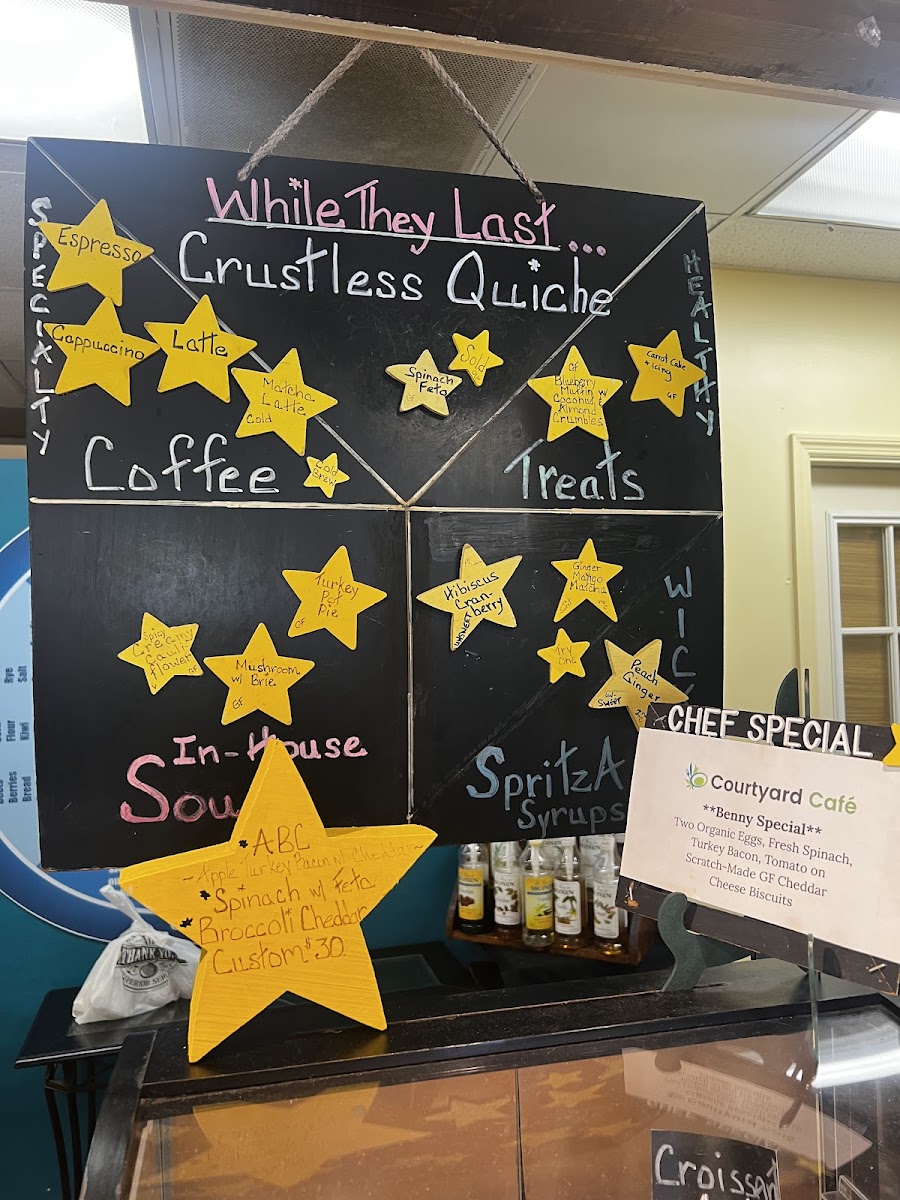 While They Last...
Crustless Quiche
SPECIALTY
Espresso
Cappuccino
Latte
Matcha
Latte
Cold
Cold
Brew
Coffee
Spinach
Feta
GF
Sold
HEALTHY
GF
Blueberry
Muffin w
Coconut
Almond
Crumbles
Carrot Cake
+ Icing
GF
Treats
Turkey
Pot
Pie
GF
Spicy
Creamy
Cauli-
flower
Mushroom
w/ Brie
GF
In-House
Sou
Hibiscus
Cran-
berry
UNSWEET
Ginger
Mango
Matcha
Try
One
Peach
Ginger
SWEET
WIC
SpritzA
Syrups
*ABC
~Apple Turkey Bacon w/ Cheddar~
*Spinach w/ Feta
*Broccoli Cheddar
Custom $30.
CHEF SPECIAL
Courtyard Café
**Benny Special**
Two Organic Eggs, Fresh Spinach,
Turkey Bacon, Tomato on
Scratch-Made GF Cheddar
Cheese Biscuits
Rye
Salt
Flour
Kiwi
Berries
Bread
THANK YOU
Croissan